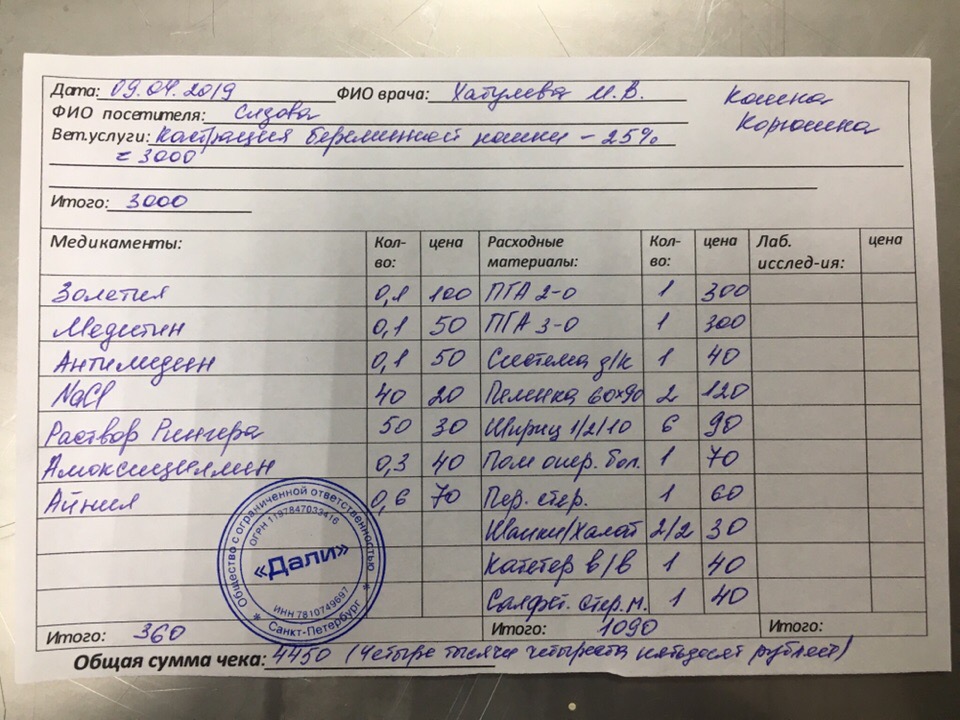 Дата: 09.04.2019 ФИО врача: Хатулева М.В. Кошка
ФИО посетителя: Сизова Корюшка
Вет.услуги: Кастрация беременной кошки – 25%
= 3000
Итого: 3000
Медикаменты: Кол-во: цена Расходные материалы: Кол-во: цена Лаб. исслед-ия: цена
Золетил 0,1 100 ПГА 2-0 1 300
Медетин 0,1 50 ПГА 3-0 1 300
Антимедин 0,1 50 Система д/к 1 40
NaCl 40 20 Пеленка 60x90 2 120
Раствор Рингера 50 30 Шприц 1/2/10 6 90
Амоксициллин 0,3 40 Пом опер. бол. 1 70
Айнил 0,6 70 Пер. стер. 1 60
Шапки/Халат 2/2 30
Катетер в/в 1 40
Салфет. стер. м. 1 40
Итого: 360 Итого: 1090 Итого:
Общая сумма чека: 4450 (Четыре тысячи четыреста пятьдесят рублей)
Общество с ограниченной ответственностью
ОГРН 1197847033416
«Дали»
ИНН 7810749697
* Санкт-Петербург *